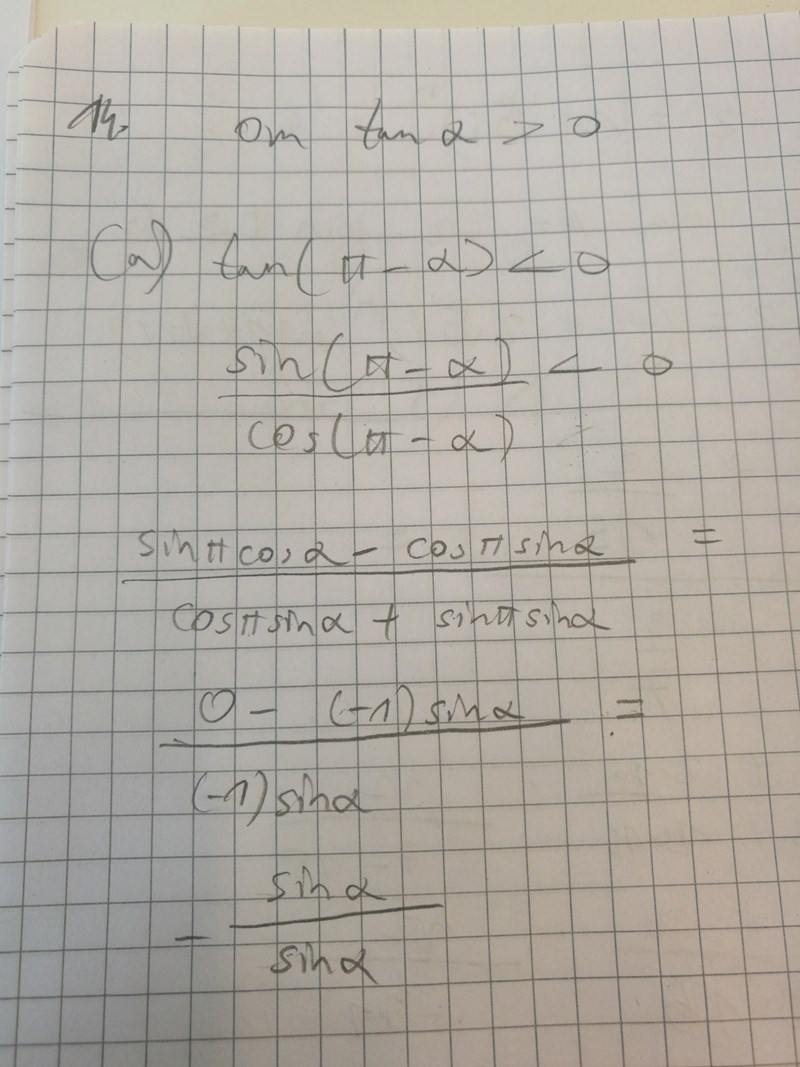 14. Om tan α > 0
(a) tan(π - α) < 0
sin(π - α) < 0
cos(π - α)
sinπ cosα - cosπ sinα =
cosπ sinα + sinπ sinα
0 - (-1) sinα =
(-1) sinα
- sinα
sinα